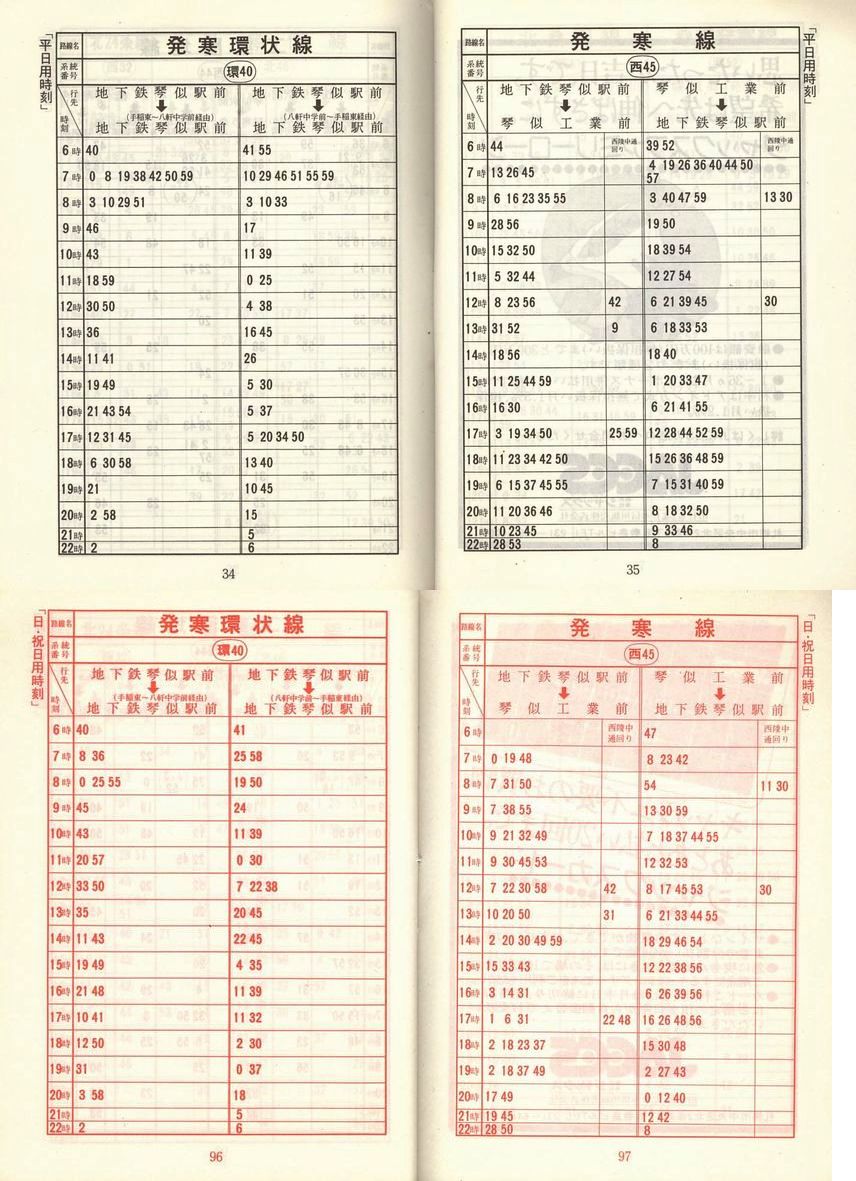 「平日用時刻」
路線名 発寒環状線
系統番号 環40
行先 時刻
地下鉄琴似駅前 ⬇ (手稲東〜八軒中学前経由) 地下鉄琴似駅前
地下鉄琴似駅前 ⬇ (八軒中学前〜手稲東経由) 地下鉄琴似駅前
6時 40 | 41 55
7時 0 8 19 38 42 50 59 | 10 29 46 51 55 59
8時 3 10 29 51 | 3 10 33
9時 46 | 17
10時 43 | 11 39
11時 18 59 | 0 25
12時 30 50 | 4 38
13時 36 | 16 45
14時 11 41 | 26
15時 19 49 | 5 30
16時 21 43 54 | 5 37
17時 12 31 45 | 5 20 34 50
18時 6 30 58 | 13 40
19時 21 | 10 45
20時 2 58 | 15
21時 | 5
22時 2 | 6
34
「平日用時刻」
路線名 発寒線
系統番号 西45
行先 時刻
地下鉄琴似駅前 ⬇ 琴似工業前
琴似工業前 ⬇ 地下鉄琴似駅前
6時 44 | 西陵中通回り | 39 52 | 西陵中通回り
7時 13 26 45 | | 4 19 26 36 40 44 50 57
8時 6 16 23 35 55 | | 3 40 47 59 | 13 30
9時 28 56 | | 19 50
10時 15 32 50 | | 18 39 54
11時 5 32 44 | | 12 27 54
12時 8 23 56 | 42 | 6 21 39 45 | 30
13時 31 52 | 9 | 6 18 33 53
14時 18 56 | | 18 40
15時 11 25 44 59 | | 1 20 33 47
16時 16 30 | | 6 21 41 55
17時 3 19 34 50 | 25 59 | 12 28 44 52 59
18時 11 23 34 42 50 | | 15 26 36 48 59
19時 6 15 37 45 55 | | 7 15 31 40 59
20時 11 20 36 46 | | 8 18 32 50
21時 10 23 45 | | 9 33 46
22時 28 53 | | 8
35
「日・祝日用時刻」
路線名 発寒環状線
系統番号 環40
行先 時刻
地下鉄琴似駅前 ⬇ (手稲東〜八軒中学前経由) 地下鉄琴似駅前
地下鉄琴似駅前 ⬇ (八軒中学前〜手稲東経由) 地下鉄琴似駅前
6時 40 | 41
7時 8 36 | 25 58
8時 0 25 55 | 19 50
9時 45 | 24
10時 43 | 11 39
11時 20 57 | 0 30
12時 33 50 | 7 22 38
13時 35 | 20 45
14時 11 43 | 22 45
15時 19 49 | 4 35
16時 21 48 | 11 39
17時 10 41 | 11 32
18時 12 50 | 2 30
19時 31 | 0 37
20時 3 58 | 18
21時 | 5
22時 2 | 6
96
「日・祝日用時刻」
路線名 発寒線
系統番号 西45
行先 時刻
地下鉄琴似駅前 ⬇ 琴似工業前
琴似工業前 ⬇ 地下鉄琴似駅前
6時 | 西陵中通回り | 47 | 西陵中通回り
7時 0 19 48 | | 8 23 42
8時 7 31 50 | | 54 | 11 30
9時 7 38 55 | | 13 30 59
10時 9 21 32 49 | | 7 18 37 44 55
11時 9 30 45 53 | | 12 32 53
12時 7 22 30 58 | 42 | 8 17 45 53 | 30
13時 10 20 50 | 31 | 6 21 33 44 55
14時 2 20 30 49 59 | | 18 29 46 54
15時 15 33 43 | | 12 22 38 56
16時 3 14 31 | | 6 26 39 56
17時 1 6 31 | 22 48 | 16 26 48 56
18時 2 18 23 37 | | 15 30 48
19時 2 18 37 49 | | 2 27 43
20時 17 49 | | 0 12 40
21時 19 45 | | 12 42
22時 28 50 | | 8
97